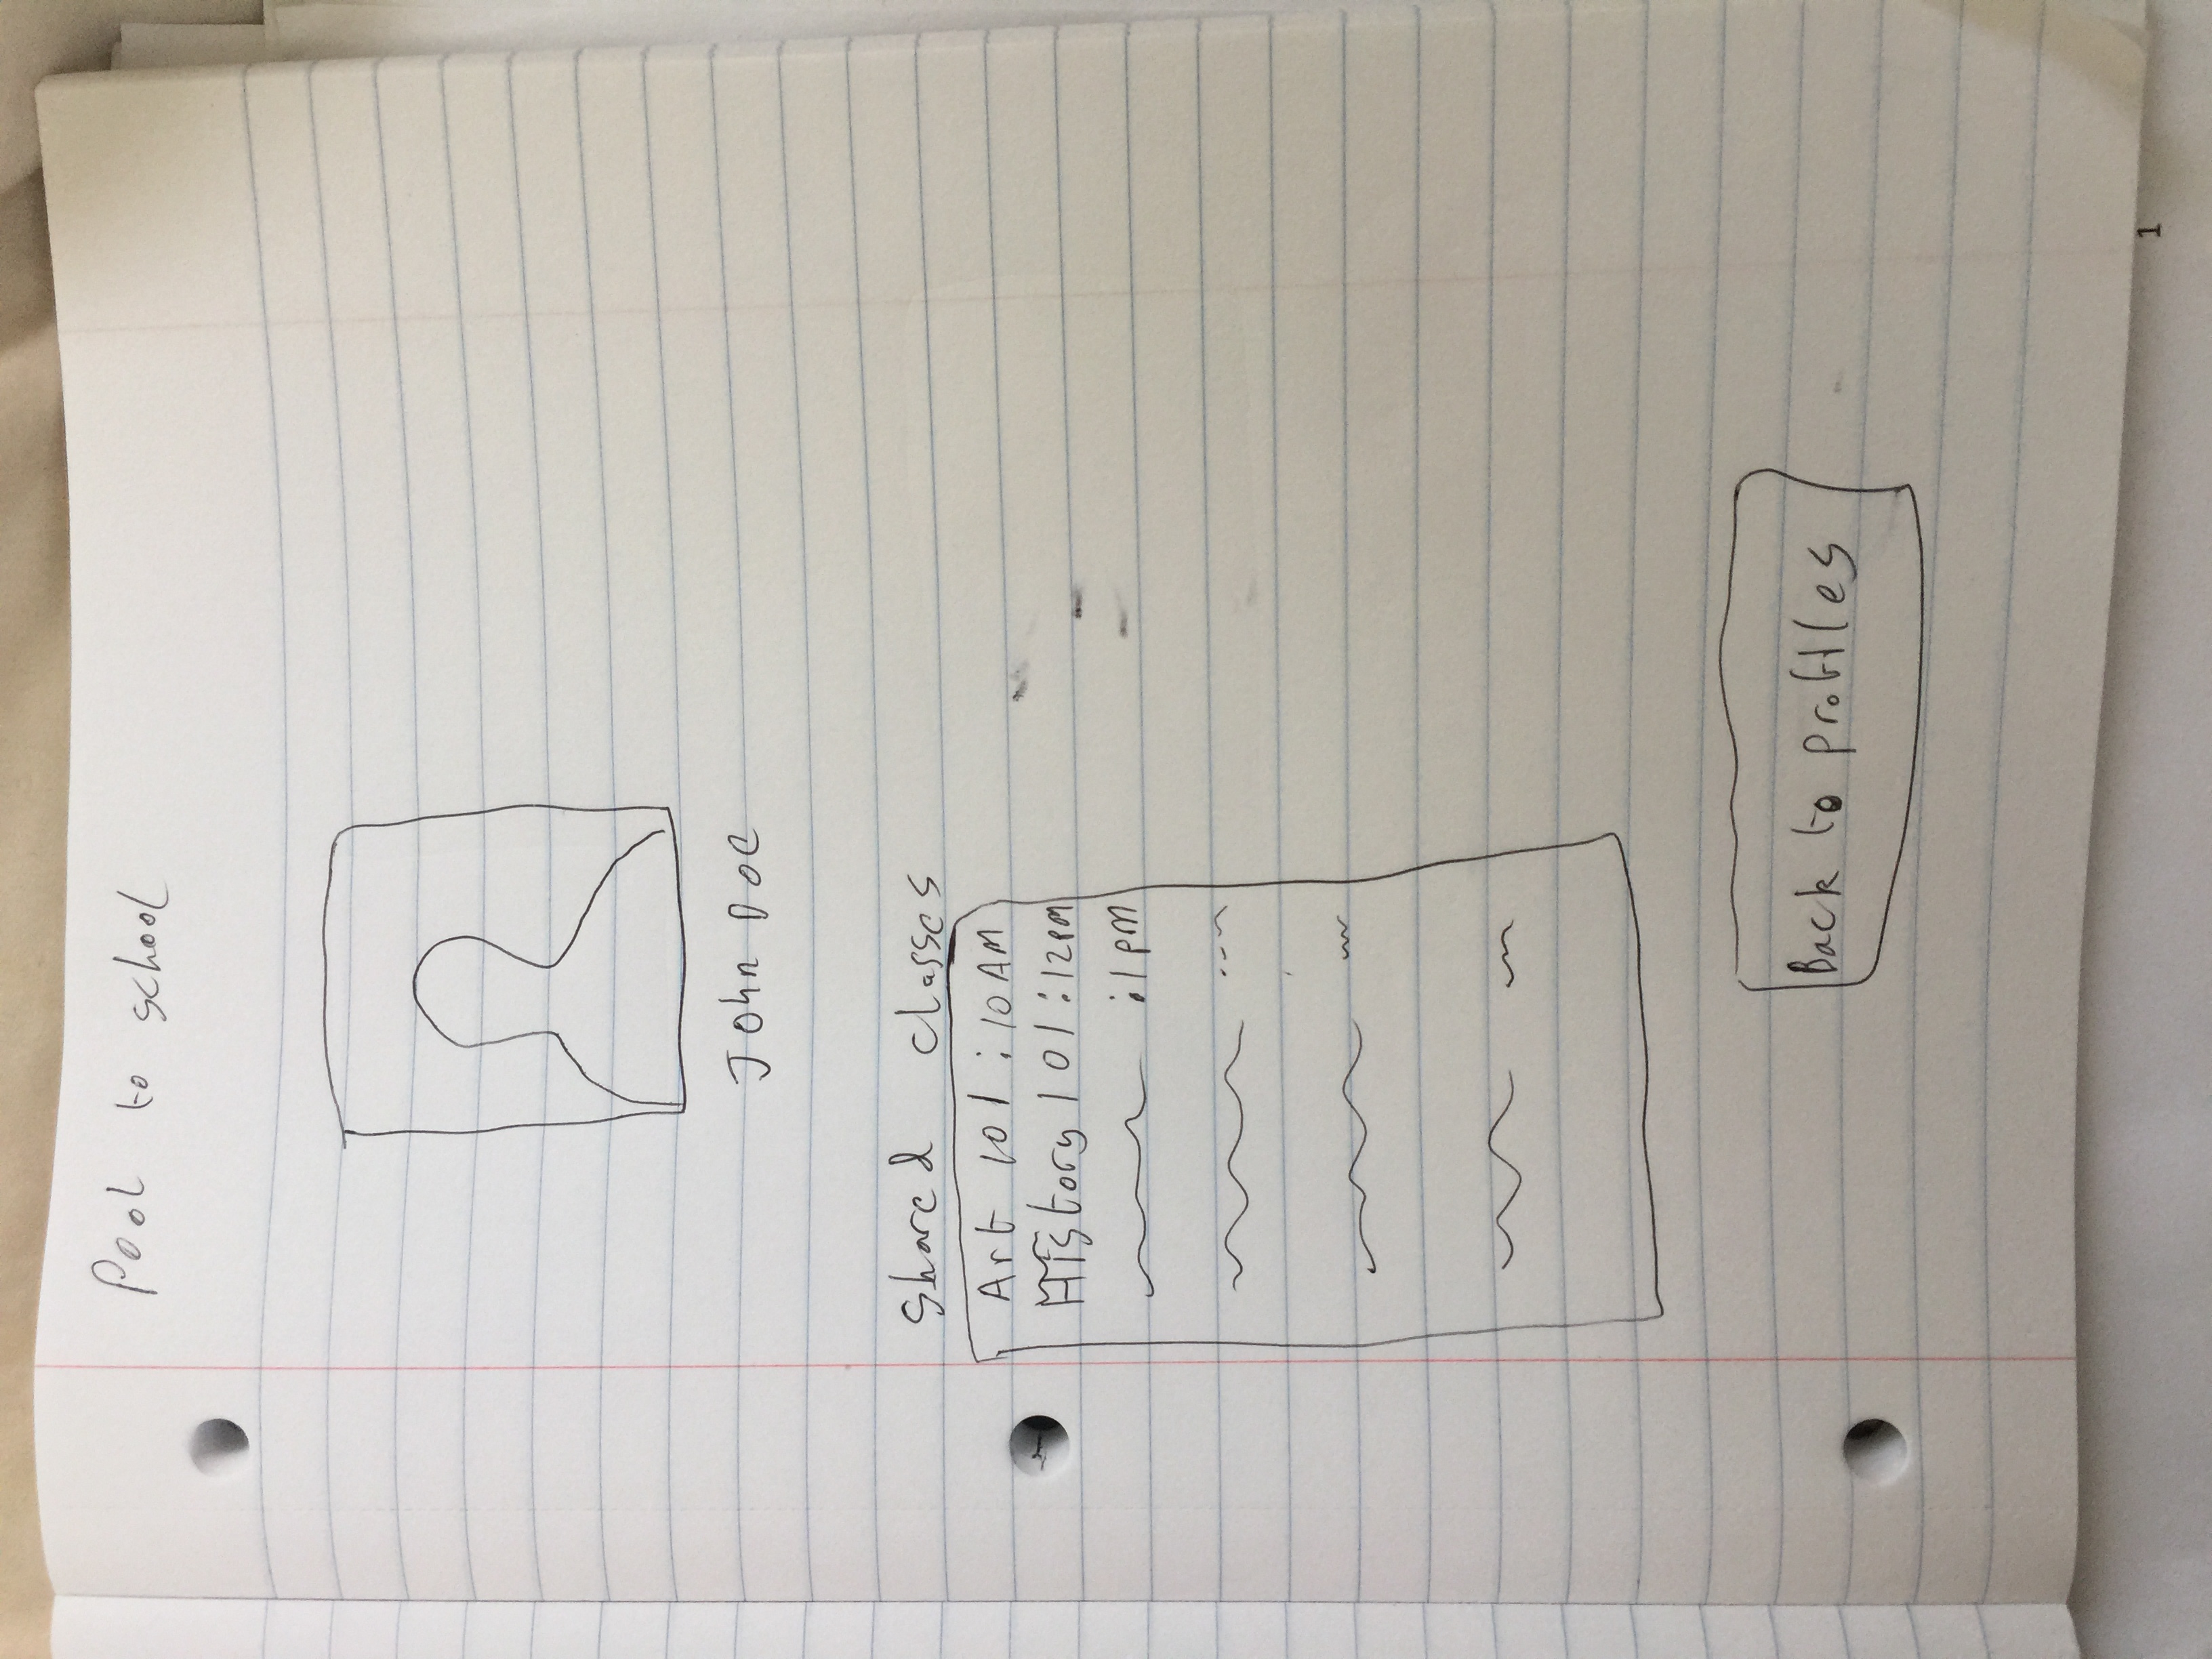 Pool to school
John Doe
Shared classes
Art 101 : 10 AM
History 101 : 12PM
: 1 PM
Back to profiles
1